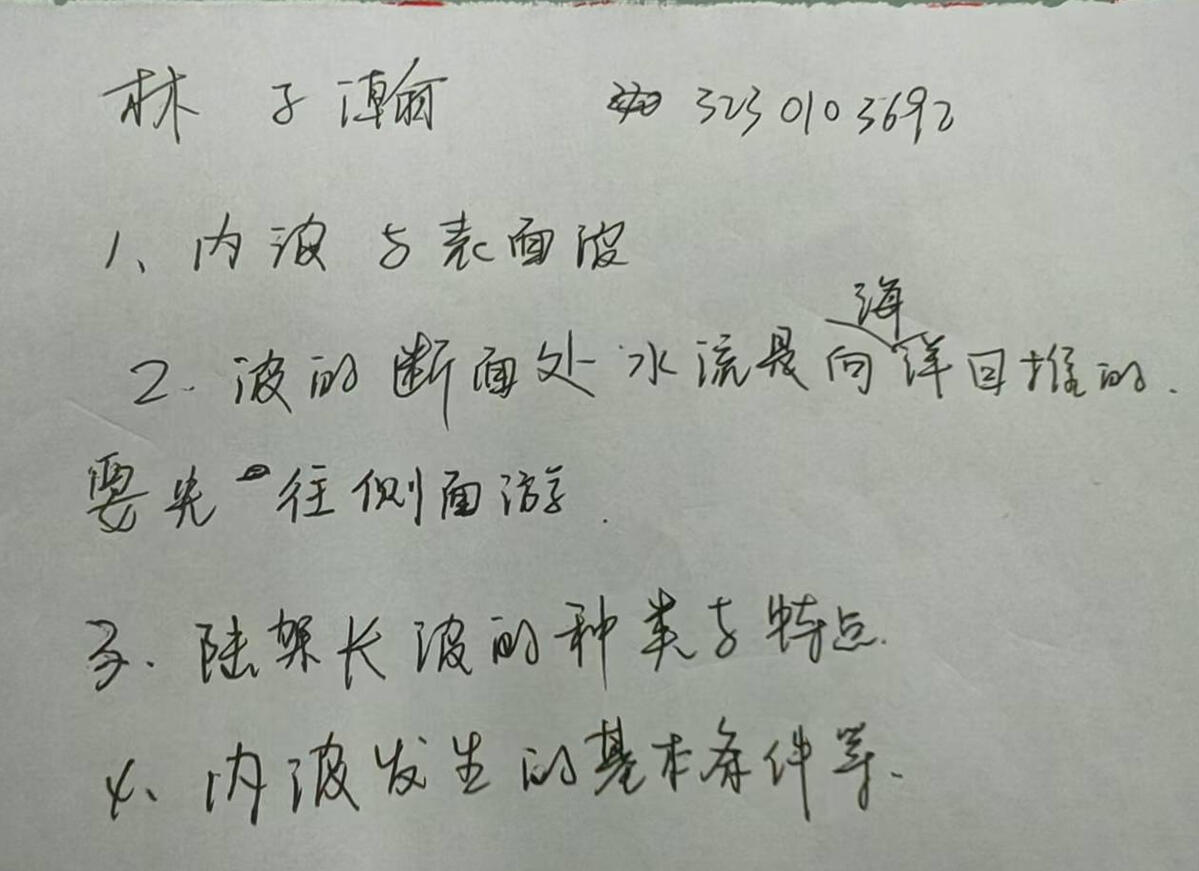 林子瀚 3230103692
1、内波与表面波
2.波的断面处水流是向海洋回推的.
要先往侧面游.
3.陆架长波的种类与特点.
4、内波发生的基本条件等.